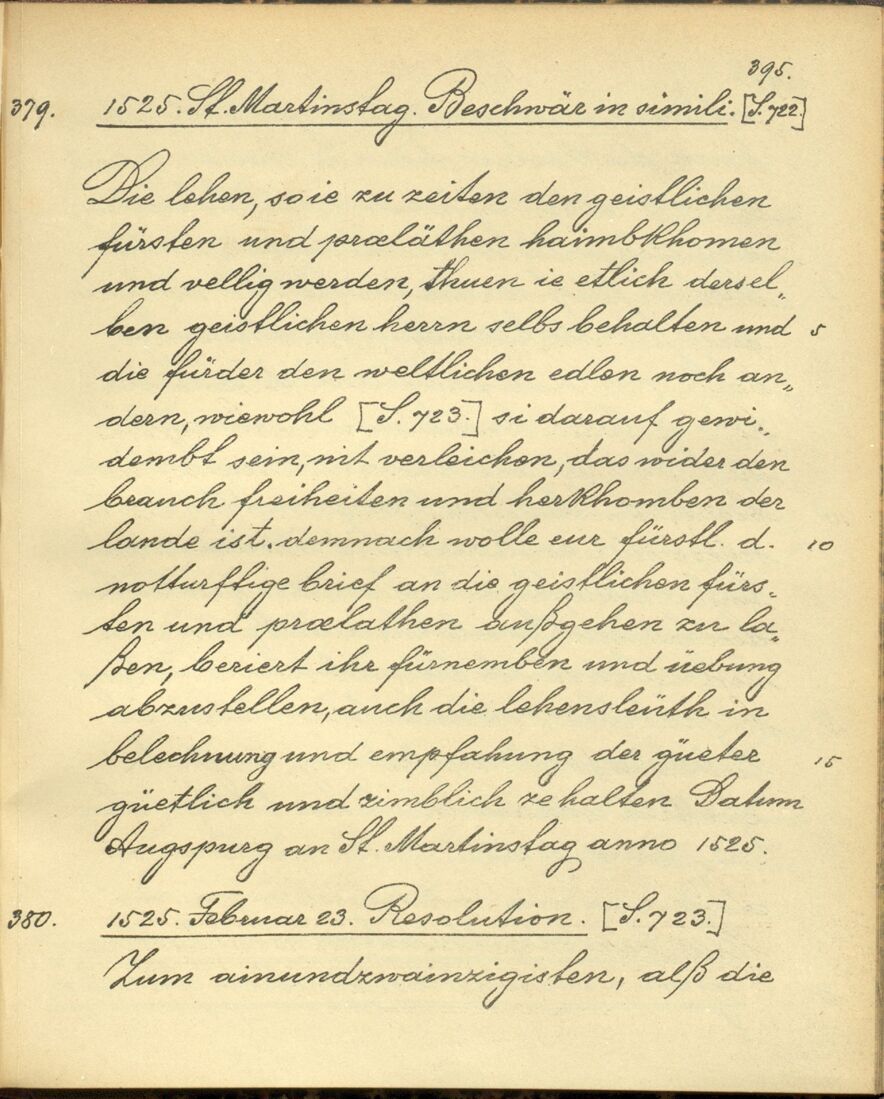 395.
379. 1525. St. Martinstag. Beschwär in simili. [S. 722]
Die lehen, so ie zu zeiten den geistlichen
fürsten und prœläthen haimbkhomen
und vellig werden, thuen ie etlich dersel„
ben geistlichen herrn selbs behalten und 5
die fürder den weltlichen edlen noch an„
dern, wiewohl [S. 723.] si darauf gewi„
dembt sein, nit verleichen, das wider den
brauch freiheiten und herkhomben der
lande ist. demnach wolle eur fürstl. d. 10
notturftige brief an die geistlichen fürs„
ten und prœlathen außgehen zu la„
ßen, beriert ihr fürnemben und üebung
abzustellen, auch die lehensleüth in
belechnung und empfahung der güeter 15
güetlich und zimblich ze halten Datum
Augspurg an St. Martinstag anno 1525.
380. 1525. Februar 23. Resolution. [S. 723.]
Zum ainundzwainzigisten, alß die